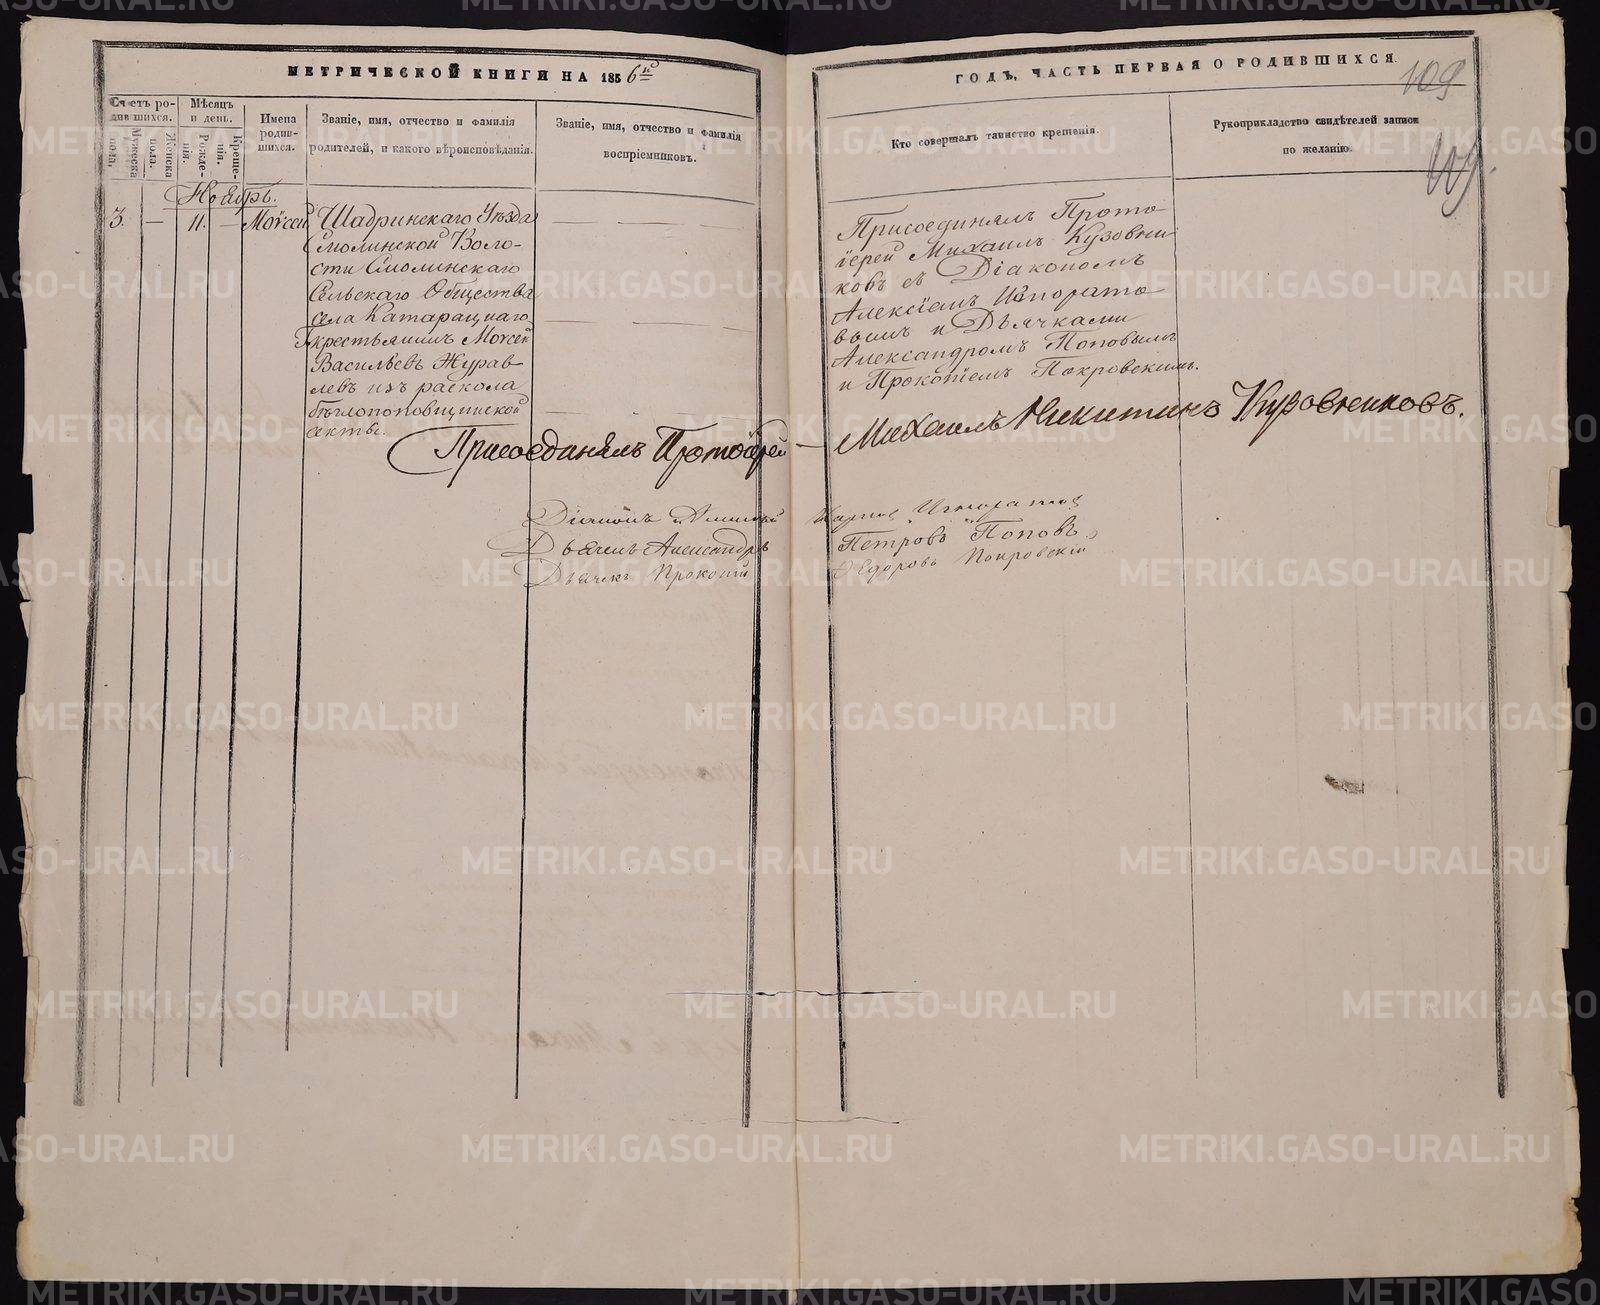 МЕТРИЧЕСКОЙ КНИГИ НА 1856й
Счетъ родившихся.
Мужеска пола.
Женска пола.
Мѣсяцъ и день.
Рожденія.
Крещенія.
Имена родившихся.
Званіе, имя, отчество и фамилія
родителей, и какого вѣроисповѣданія.
Званіе, имя, отчество и фамилія
воспріемниковъ.
Ноябрь.
3. — 11. — Моѵсей
Шадринскаго Уѣзда
Смолинской Воло-
сти Смолинскаго
Сельскаго Общества
села Катарацкаго
крестьянинъ Моѵсей
Васильевъ Журав-
левъ изъ раскола
бѣглопоповщинской
секты.
Присоединялъ Протоіерей —
Діаконъ Алексій
Дьячекъ Александръ
Дьячекъ Прокопій
ГОДЪ, ЧАСТЬ ПЕРВАЯ О РОДИВШИХСЯ.
109
109.
Кто совершалъ таинство крещенія.
Рукоприкладство свидѣтелей записи
по желанію.
Присоединялъ Прото-
іерей Михаилъ Кузовни-
ковъ съ Діакономъ
Алексіемъ Игнорато-
вымъ и Дьячками
Александромъ Поповымъ
и Прокопіемъ Покровскимъ.
Михаилъ Никитинъ Кузовниковъ.
Петровъ Поповъ
Ѳедоровъ Покровскій
METRIKI.GASO-URAL.RU